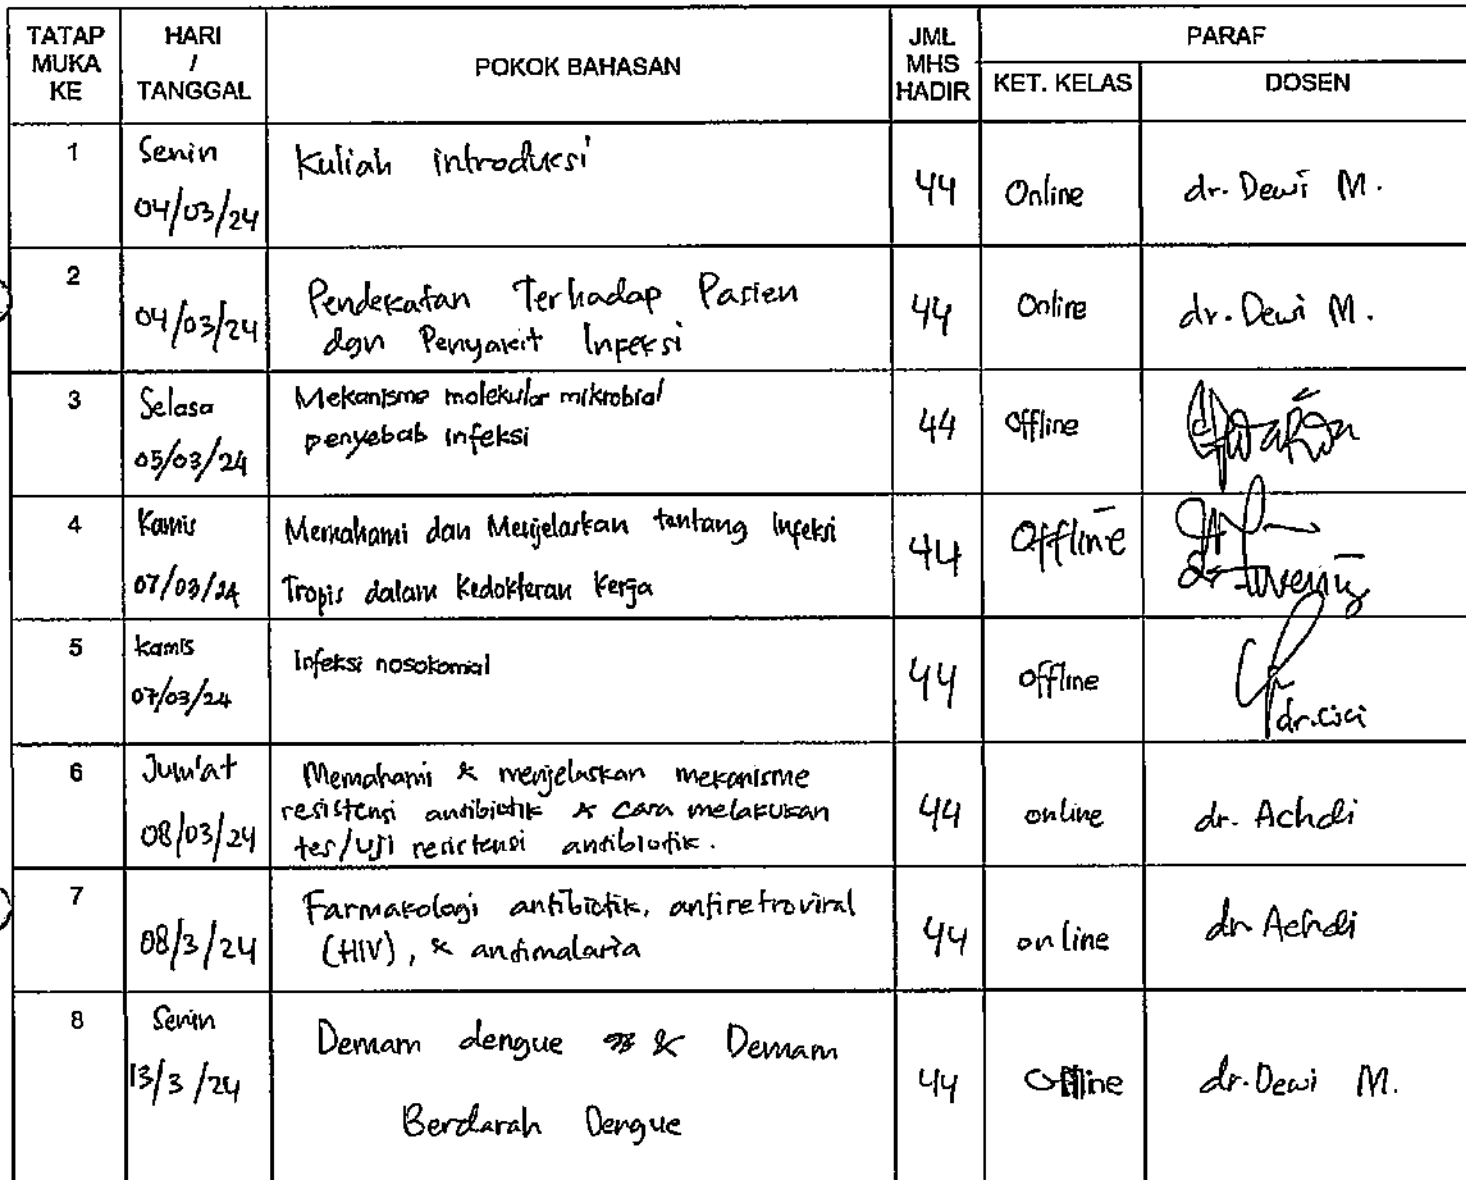 TATAP MUKA KE
HARI / TANGGAL
POKOK BAHASAN
JML MHS HADIR
PARAF
KET. KELAS
DOSEN
1
Senin
04/03/24
Kuliah introduksi
44
Online
dr. Dewi M.
2
04/03/24
Pendekatan Terhadap Pasien
dgn Penyakit Infeksi
44
Online
dr. Dewi M.
3
Selasa
05/03/24
Mekanisme molekular mikrobial
penyebab infeksi
44
Offline
4
Kamis
07/03/24
Memahami dan Menjelaskan tentang Infeksi
Tropis dalam Kedokteran Kerja
44
Offline
5
kamis
07/03/24
Infeksi nosokomial
44
Offline
dr. Cici
6
Jum'at
08/03/24
Memahami & menjelaskan mekanisme
resistensi antibiotik & cara melakukan
tes/uji resistensi antibiotik.
44
online
dr. Achdi
7
08/3/24
Farmakologi antibiotik, antiretroviral
(HIV), & antimalaria
44
online
dr Achdi
8
Senin
13/3/24
Demam dengue & Demam
Berdarah Dengue
44
Offline
dr. Dewi M.